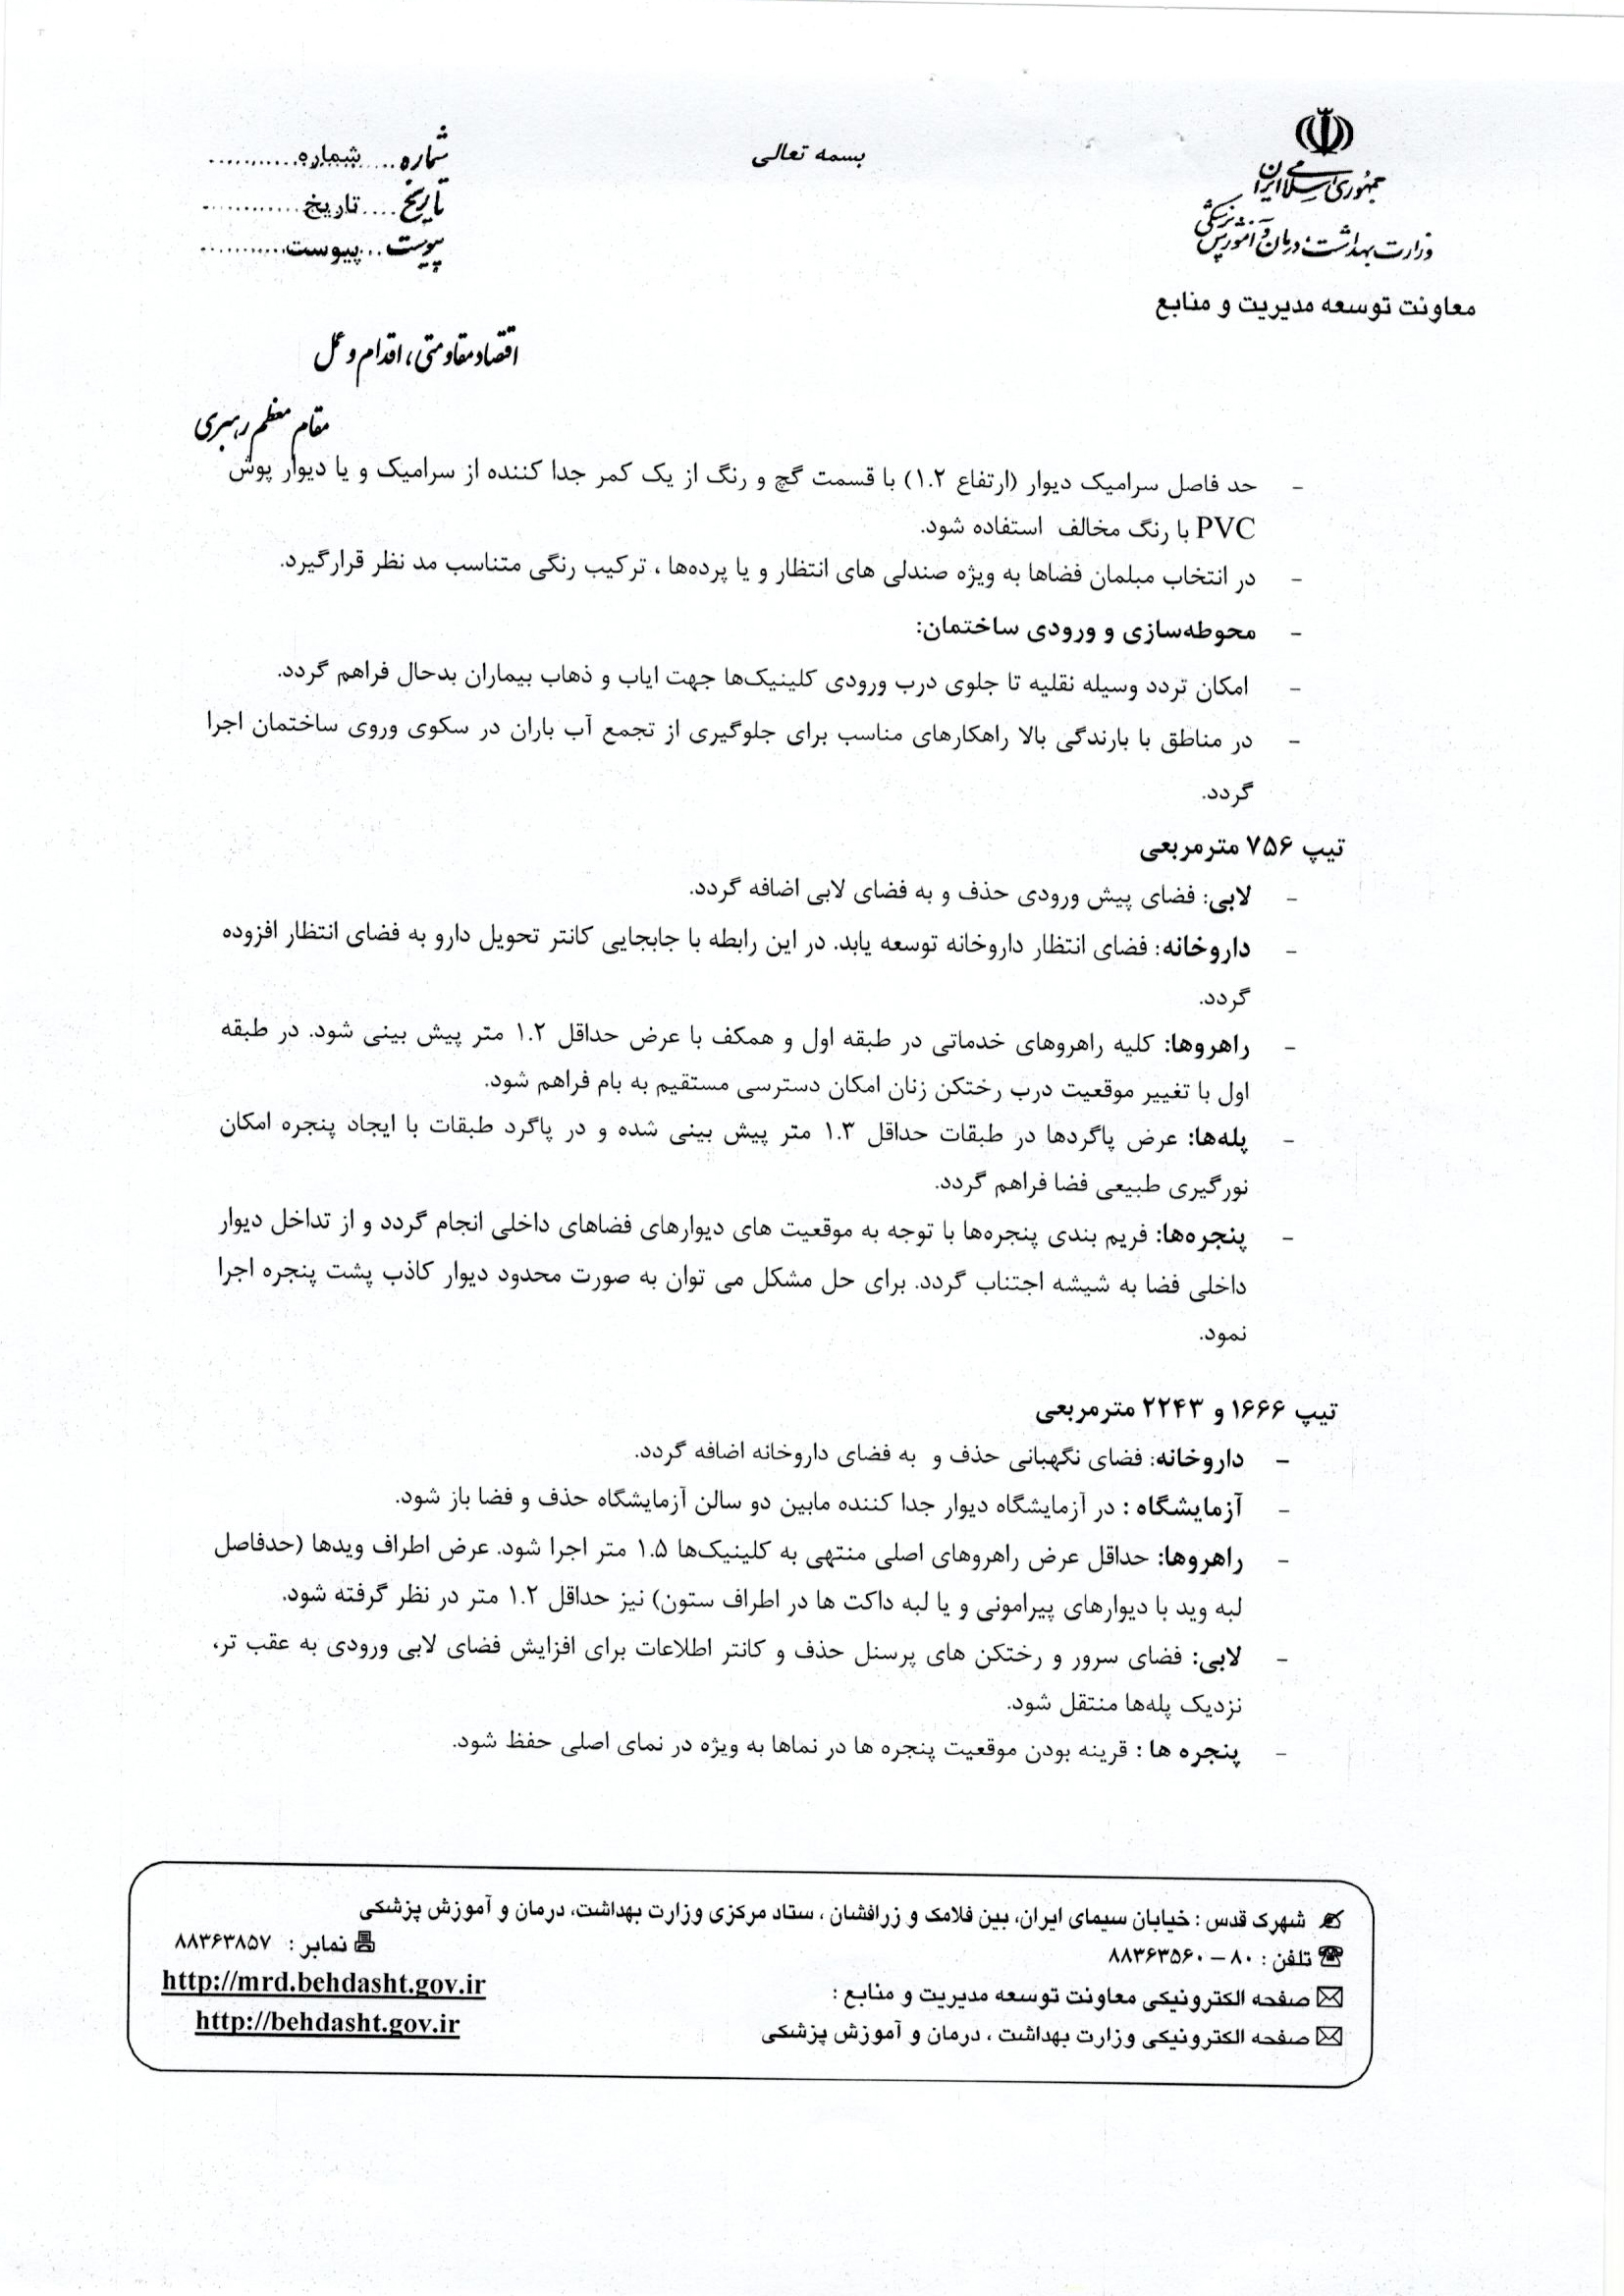 جمهوری اسلامی ایران
وزارت بهداشت، درمان و آموزش پزشکی
معاونت توسعه مدیریت و منابع
بسمه تعالی
شماره....شماره...........
تاریخ....تاریخ............
پیوست...پیوست...........
اقتصاد مقاومتی، اقدام و عمل
مقام معظم رهبری
- حد فاصل سرامیک دیوار (ارتفاع ۱.۲) با قسمت گچ و رنگ از یک کمر جدا کننده از سرامیک و یا دیوار پوش
PVC با رنگ مخالف استفاده شود.
- در انتخاب مبلمان فضاها به ویژه صندلی های انتظار و یا پرده‌ها ، ترکیب رنگی متناسب مد نظر قرارگیرد.
- محوطه‌سازی و ورودی ساختمان:
- امکان تردد وسیله نقلیه تا جلوی درب ورودی کلینیک‌ها جهت ایاب و ذهاب بیماران بدحال فراهم گردد.
- در مناطق با بارندگی بالا راهکارهای مناسب برای جلوگیری از تجمع آب باران در سکوی وروی ساختمان اجرا
گردد.
تیپ ۷۵۶ مترمربعی
- لابی: فضای پیش ورودی حذف و به فضای لابی اضافه گردد.
- داروخانه: فضای انتظار داروخانه توسعه یابد. در این رابطه با جابجایی کانتر تحویل دارو به فضای انتظار افزوده
گردد.
- راهروها: کلیه راهروهای خدماتی در طبقه اول و همکف با عرض حداقل ۱.۲ متر پیش بینی شود. در طبقه
اول با تغییر موقعیت درب رختکن زنان امکان دسترسی مستقیم به بام فراهم شود.
- پله‌ها: عرض پاگردها در طبقات حداقل ۱.۳ متر پیش بینی شده و در پاگرد طبقات با ایجاد پنجره امکان
نورگیری طبیعی فضا فراهم گردد.
- پنجره‌ها: فریم بندی پنجره‌ها با توجه به موقعیت های دیوارهای فضاهای داخلی انجام گردد و از تداخل دیوار
داخلی فضا به شیشه اجتناب گردد. برای حل مشکل می توان به صورت محدود دیوار کاذب پشت پنجره اجرا
نمود.
تیپ ۱۶۶۶ و ۲۲۴۳ مترمربعی
- داروخانه: فضای نگهبانی حذف و به فضای داروخانه اضافه گردد.
- آزمایشگاه : در آزمایشگاه دیوار جدا کننده مابین دو سالن آزمایشگاه حذف و فضا باز شود.
- راهروها: حداقل عرض راهروهای اصلی منتهی به کلینیک‌ها ۱.۵ متر اجرا شود. عرض اطراف ویدها (حدفاصل
لبه وید با دیوارهای پیرامونی و یا لبه داکت ها در اطراف ستون) نیز حداقل ۱.۲ متر در نظر گرفته شود.
- لابی: فضای سرور و رختکن های پرسنل حذف و کانتر اطلاعات برای افزایش فضای لابی ورودی به عقب تر،
نزدیک پله‌ها منتقل شود.
- پنجره ها : قرینه بودن موقعیت پنجره ها در نماها به ویژه در نمای اصلی حفظ شود.
شهرک قدس : خیابان سیمای ایران، بین فلامک و زرافشان ، ستاد مرکزی وزارت بهداشت، درمان و آموزش پزشکی
تلفن : ۸۰ – ۸۸۳۶۳۵۶۰ نمابر : ۸۸۳۶۳۸۵۷
صفحه الکترونیکی معاونت توسعه مدیریت و منابع : http://mrd.behdasht.gov.ir
صفحه الکترونیکی وزارت بهداشت ، درمان و آموزش پزشکی http://behdasht.gov.ir